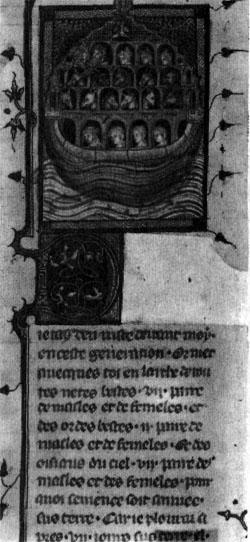 ie tay veu iuste devant moy
en ceste generation · Or met
avecques toi en larche de tou
tes netes bestes · vii · paire
de masles et de femeles · et
des ordes bestes · ii · paire de
masles et de femeles · Et des
oisiaus du ciel · vii · paire de
masles et des femeles pour
quoi semence soit sauvee
sus terre · Car ie a
pres · vii · iours sus terre ·